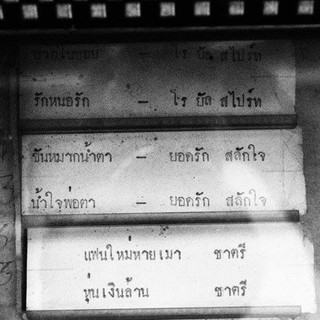 – โร ยัล สไปร์ท
รักหนอรัก – โร ยัล สไปร์ท
ขันหมากน้ำตา – ยอดรัก สลักใจ
น้ำใจพ่อตา – ยอดรัก สลักใจ
แฟนใหม่หายเมา ชาตรี
หุ่นเงินล้าน ชาตรี